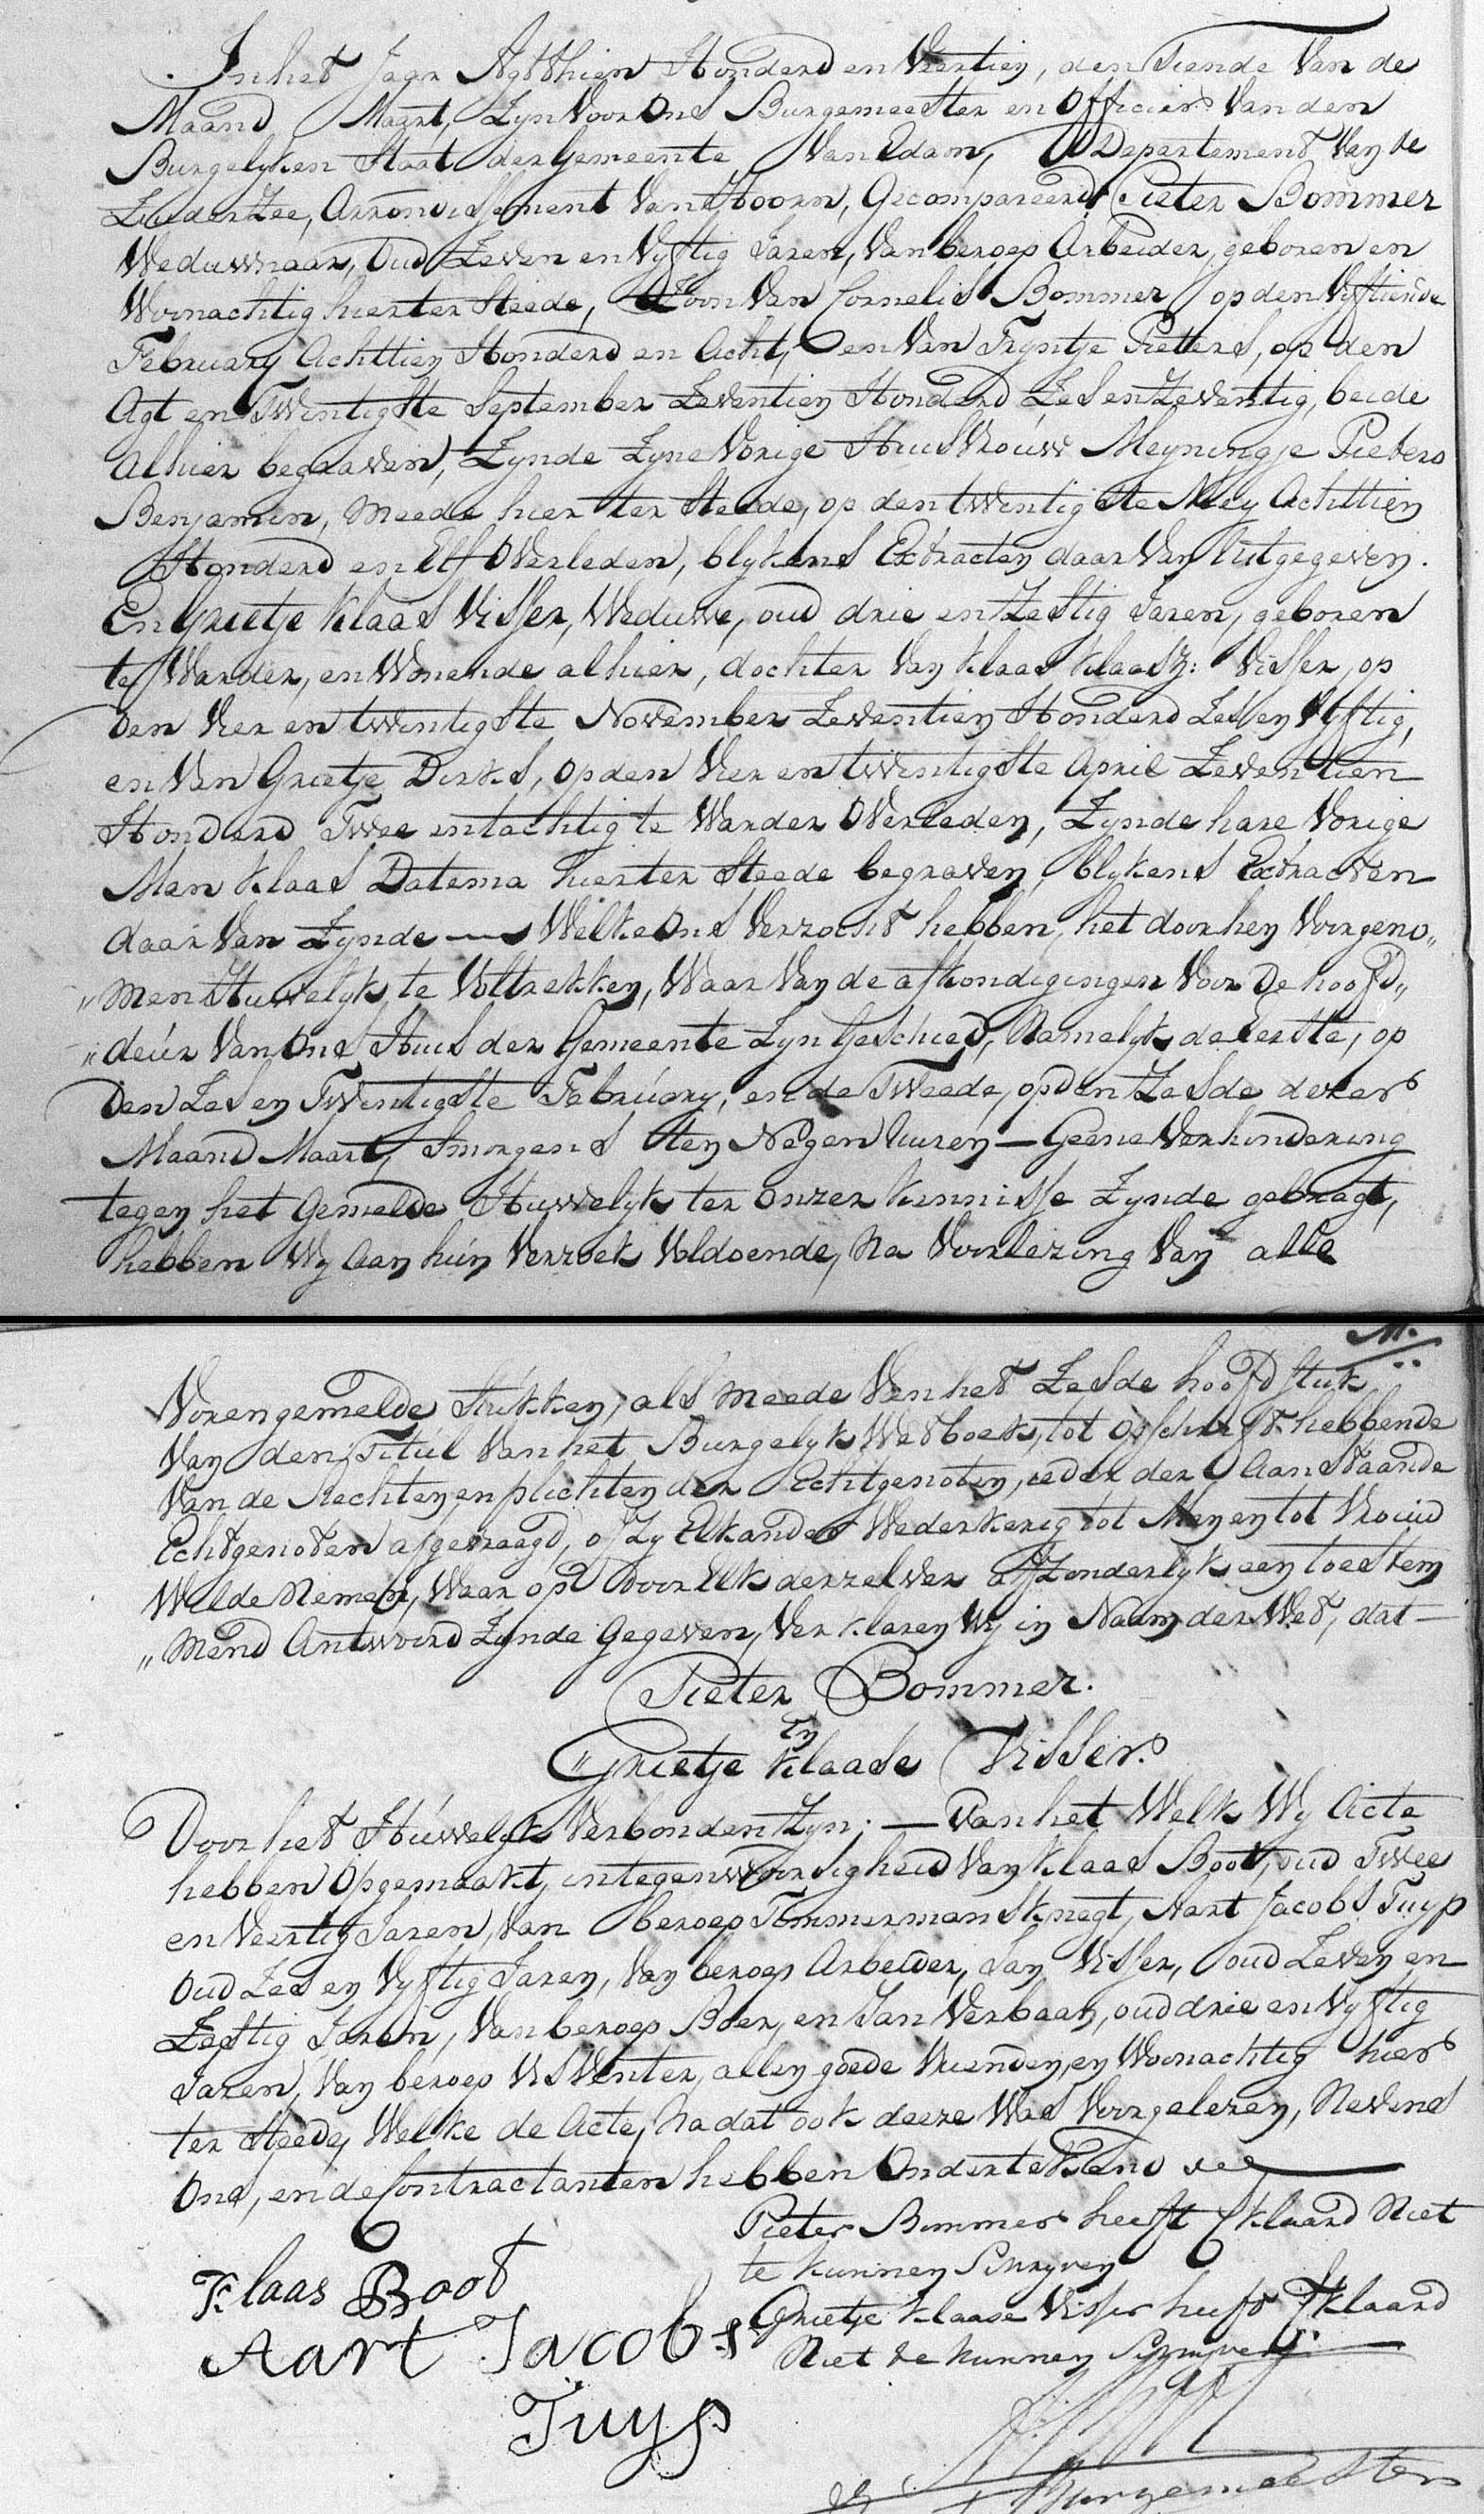 In het Jaar Agtthien Honderd en Veertien, den Tiende Van de
Maand Maart, Zyn Voor Ons Burgemeester en Officier Van den
Burgelyken Staat der Gemeente Van Edam, Departement Van de
Zuiderzee, Arrondissement Van Hoorn, Gecompareerd Pieter Bommer
Weduwnaar, Oud Zeven en Vyftig Jaren, Van beroep Arbeider, geboren en
Woonachtig hier ter Steede, Zoon Van Cornelis Bommer op den Vyftiende
February Achttien Honderd en Acht, en Van Tryntje Pieters, op den
Agt en Twintigste September Zeventien Honderd Zes en Zeventig, beide
Alhier begraven, Zynde Zyne Vorige Huisvrouw Meyningje Pieters
Benjamin, Meede hier ter Steede, op den twintigste Mey Achttien
Honderd en Elf Overleden, blykens Extracten daar Van Uitgegeven.
En Grietje Klaas Visser, Weduwe, oud drie en Zestig Jaren, geboren
te Warder, en Wonende alhier, dochter Van Klaas Klaasz: Visser, op
den Vier en twintigste November Zeventien Honderd Zes en Vyftig,
en Van Grietje Dirks, op den Vier en twintigste April Zeventien
Honderd Twee en tachtig te Warder Overleden, Zynde hare Vorige
Man Klaas Datema hier ter Steede begraven, blykens Extracten
daar Van Zynde — Welke Ons Verzocht hebben, het door hen Voorgeno„
„men Huwelyk te Voltrekken, Waar Van de afkondigingen Voor De hoofd„
„deur Van Ons Huis der Gemeente Zyn Geschied, Namelyk de eerste, op
Den Zes en Twintigste February, en de Tweede, op den Zesde dezer
Maand Maart, Smorgens ten Negen Uuren — Geene Verhindering
tegen het Gemelde Huwelyk ter onzer kennisse Zynde gebragt,
hebben Wy Aan hun Verzoek Voldoende, Na Voorlezing Van alle
Vorengemelde Stukken, als Meede Van het Zesde hoofdstuk
Van den Titul Van het Burgelyk Wetboek, tot Opschrift hebbende
Van de Rechten en plichten der Echtgenoten, ieder der Aanstaande
Echtgenoten afgevraagd, of Zy Elkander Wederkerig tot Man en tot Vrouw
Wilde Nemen, Waar op Door Elk derzelver Afzonderlyk een toestem
„mend Antwoord Zynde Gegeven, Verklaren Wy in Naam der Wet, dat —
Pieter Bommer.
En
Grietje Klaase Visser.
Door het Huwelyk Verbonden Zyn; — Van het Welk Wy Acte
hebben Opgemaakt, in tegenwoordigheid Van Klaas Boot, oud Twee
en Veertig Jaren, Van beroep Timmermansknegt, Aart Jacobs Tuyp
Oud Zes en Vyftig Jaren, Van beroep Arbeider, Jan Visser, oud Zeven en
Zestig Jaren, Van beroep Boer, en Jan Verbaan, oud drie en Vyftig
Jaren, Van beroep Visventer, allen goede Vrienden, en Woonachtig hier
ter Steede, Welke de Acte, Nadat ook deeze Was Voorgelezen, Nevens
Ons, en de Contractanten hebben Ondertekend
Pieter Bommer heeft Verklaard Niet
te kunnen Schryven
Klaas Boot
Grietje Klaase Visser heeft Verklaard
Aart Jacobs
Niet te kunnen Schryven.
Tuyp
Burgemeester